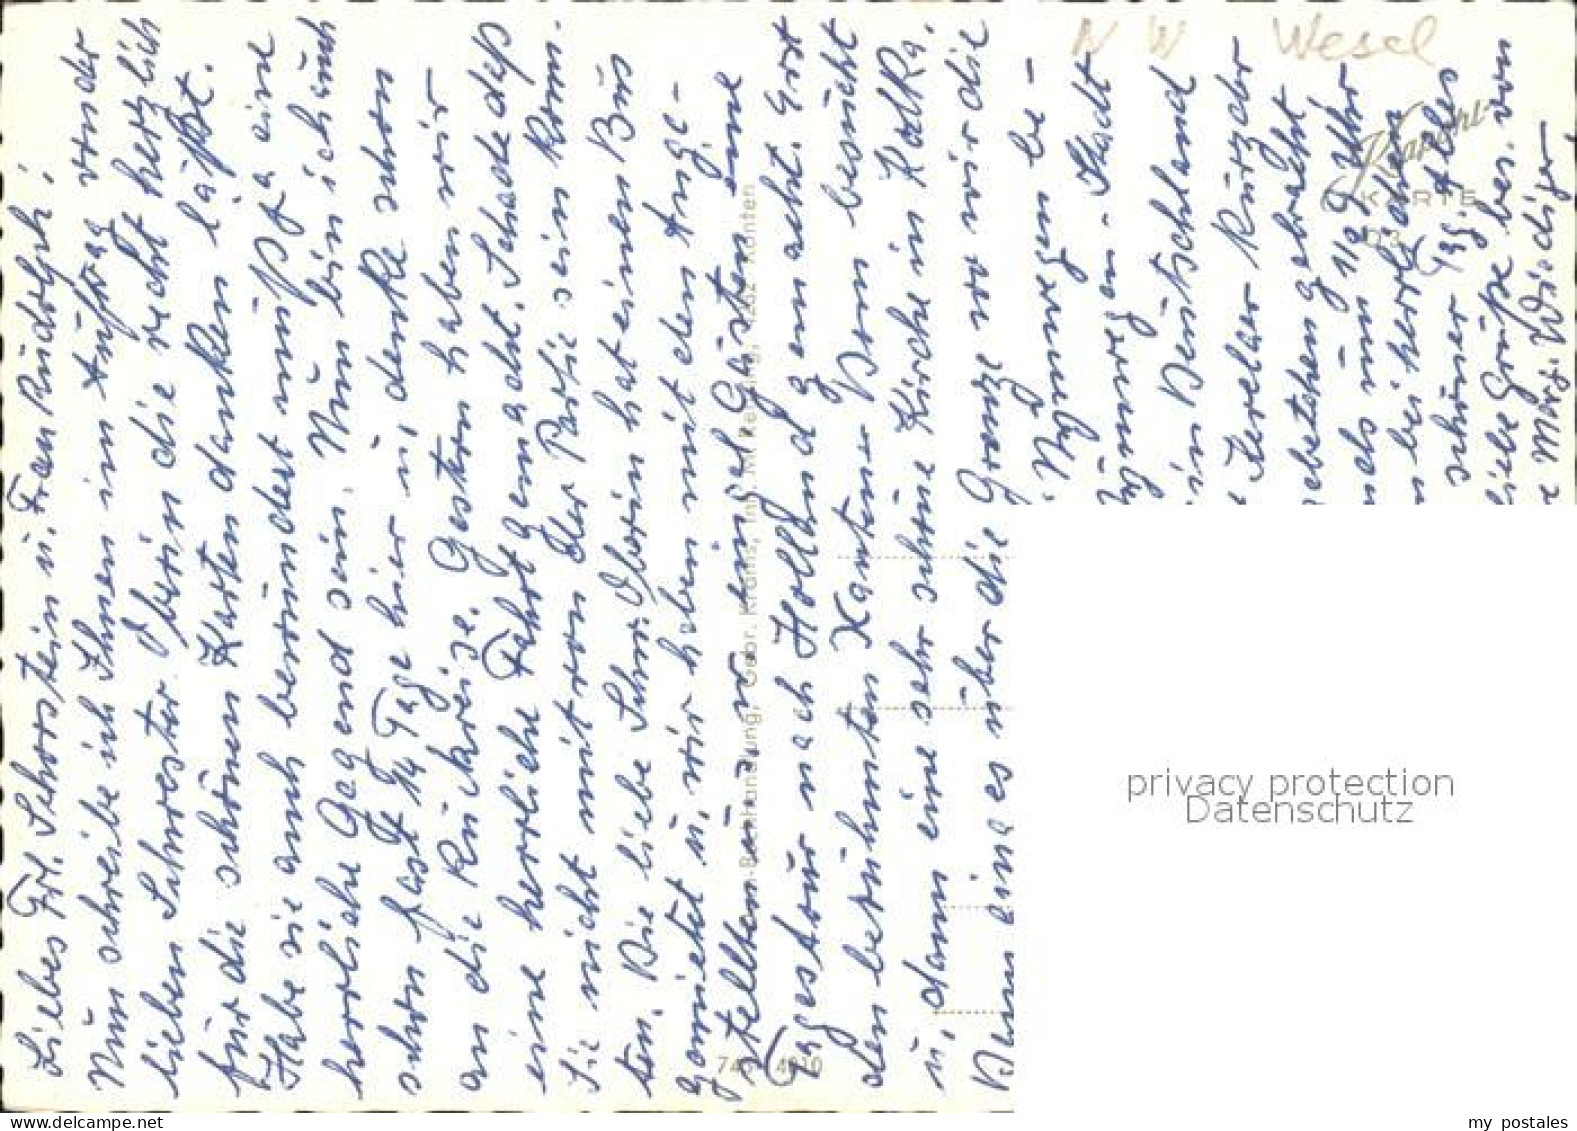 Liebes Frl. Schorstein u. Frau Rudolph!
Nun schreibe ich Ihnen im Auftrag von der
lieben Schwester Oberin die recht herzlich
für die schönen Karten danken läßt.
Habe sie auch bewundert muß ja eine
herrliche Gegend sein. Nun bin ich auch
schon fast 14 Tage hier u. denke schon
an die Rückreise. Gestern haben wir
eine herrliche Fahrt gemacht. Schade daß
Sie nicht mit von der Partie sein konn-
ten. Die liebe Schw. Oberin hat einen Bus
gemietet u. wir haben mit den Ange-
stellten u. einigen Gästen eine
Tagestour nach Holland gemacht. Erst
den berühmten Xantener Dom besucht
u. dann eine sehr schöne Kirche in Kalkar.
Dann ging es über die Grenze wo wir die
Nymwegen be-
Stadt
in Deutschland
Kevelaer Kurz der
gebracht
um 1/2 9 Uhr
bei herrlichem
schöner Tag. Alles
liebe Grüße Ihnen von
Marg. Rüdiger
NW Wesel
Kapohl
KARTE
Buchhandlung, Gebr. Krams, Inh. M.
privacy protection
Datenschutz
my postales